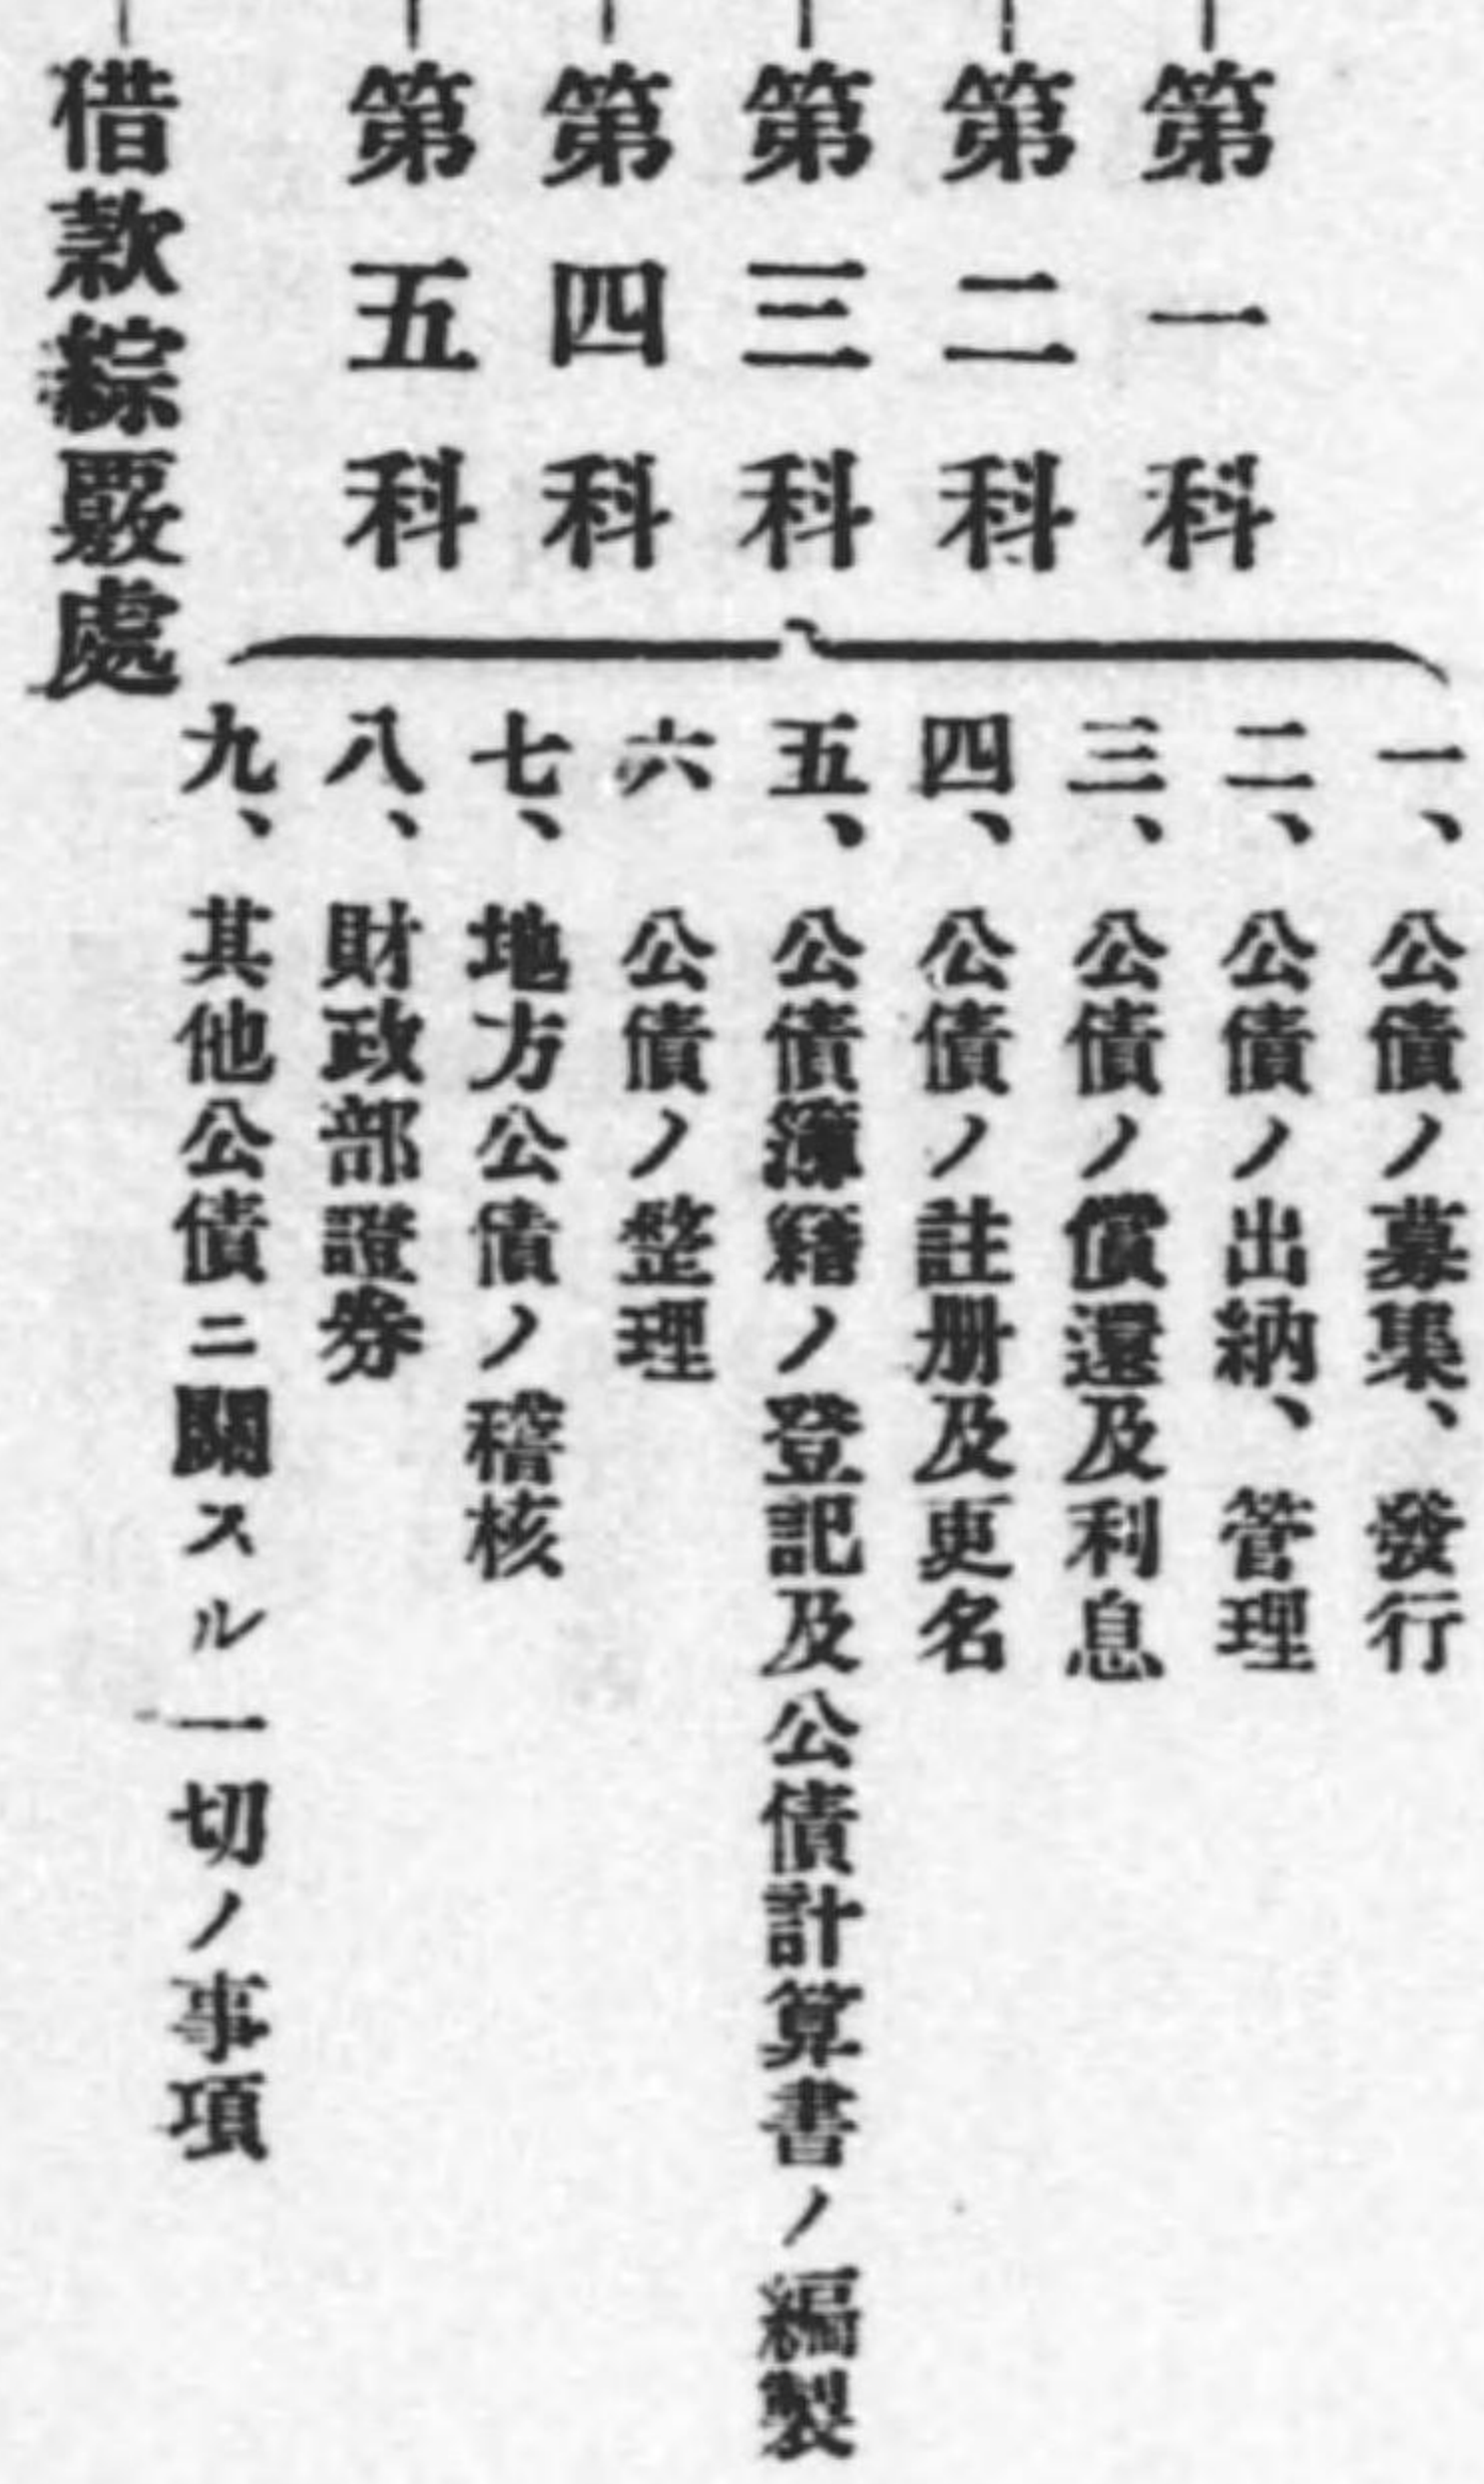 第一科
第二科
第三科
第四科
第五科
一、公債ノ募集、發行
二、公債ノ出納、管理
三、公債ノ償還及利息
四、公債ノ註册及更名
五、公債簿籍ノ登記及公債計算書ノ編製
六 公債ノ整理
七、地方公債ノ稽核
八、財政部證券
九、其他公債ニ關スル一切ノ事項
借款綜覈處